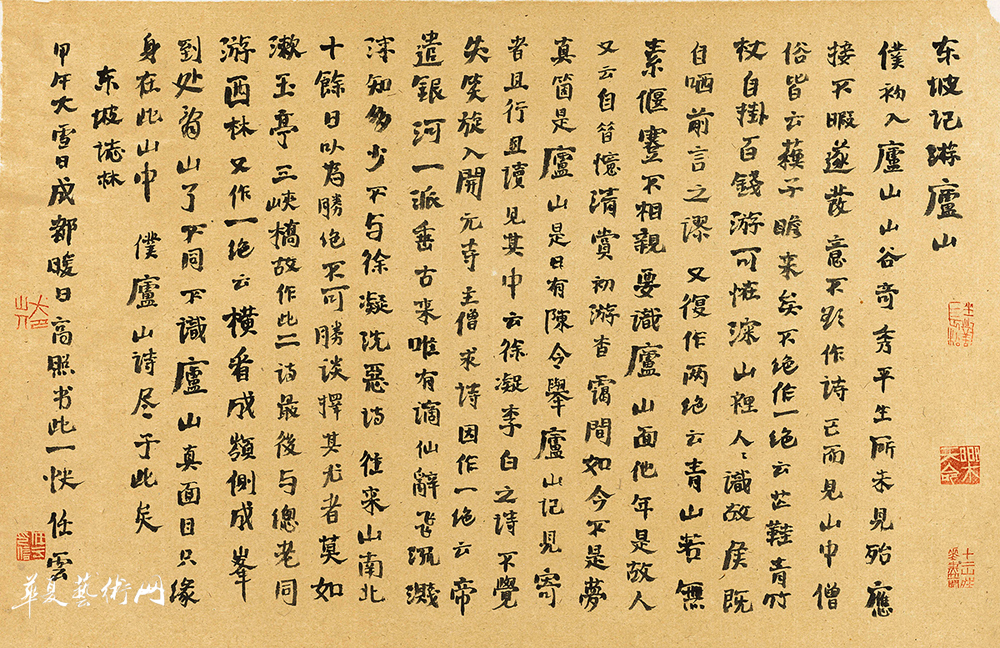 东坡记游廬山
僕初入廬山山谷奇秀平生所未見殆應
接不暇遂發意不欲作诗已而見山中僧
俗皆云蘇子瞻来矣不绝作一绝云芒鞋青竹
杖自掛百錢游可怪深山裡人〻識故侯既
自哂前言之謬又復作两绝云青山若無
素偃蹇不相親要識廬山面他年是故人
又云自昔憶清賞初游杳靄間如今不是夢
真箇是廬山是日有陳令舉廬山记見寄
者且行且讀見其中云徐凝李白之诗不覺
失笑旋入開元寺主僧求诗因作一绝云帝
遣銀河一派垂古来唯有謫仙辭飛流濺
沫知多少不与徐凝洗惡诗往来山南北
十餘日以为勝绝不可勝谈擇其尤者莫如
漱玉亭三峽橋故作此二诗最後与總老同
游西林又作一绝云横看成嶺側成峯
到处看山了不同不識廬山真面目只缘
身在此山中 僕廬山诗尽于此矣
东坡志林
甲午大雪日成都暖日高照书此一快任雲
華夏藝術网